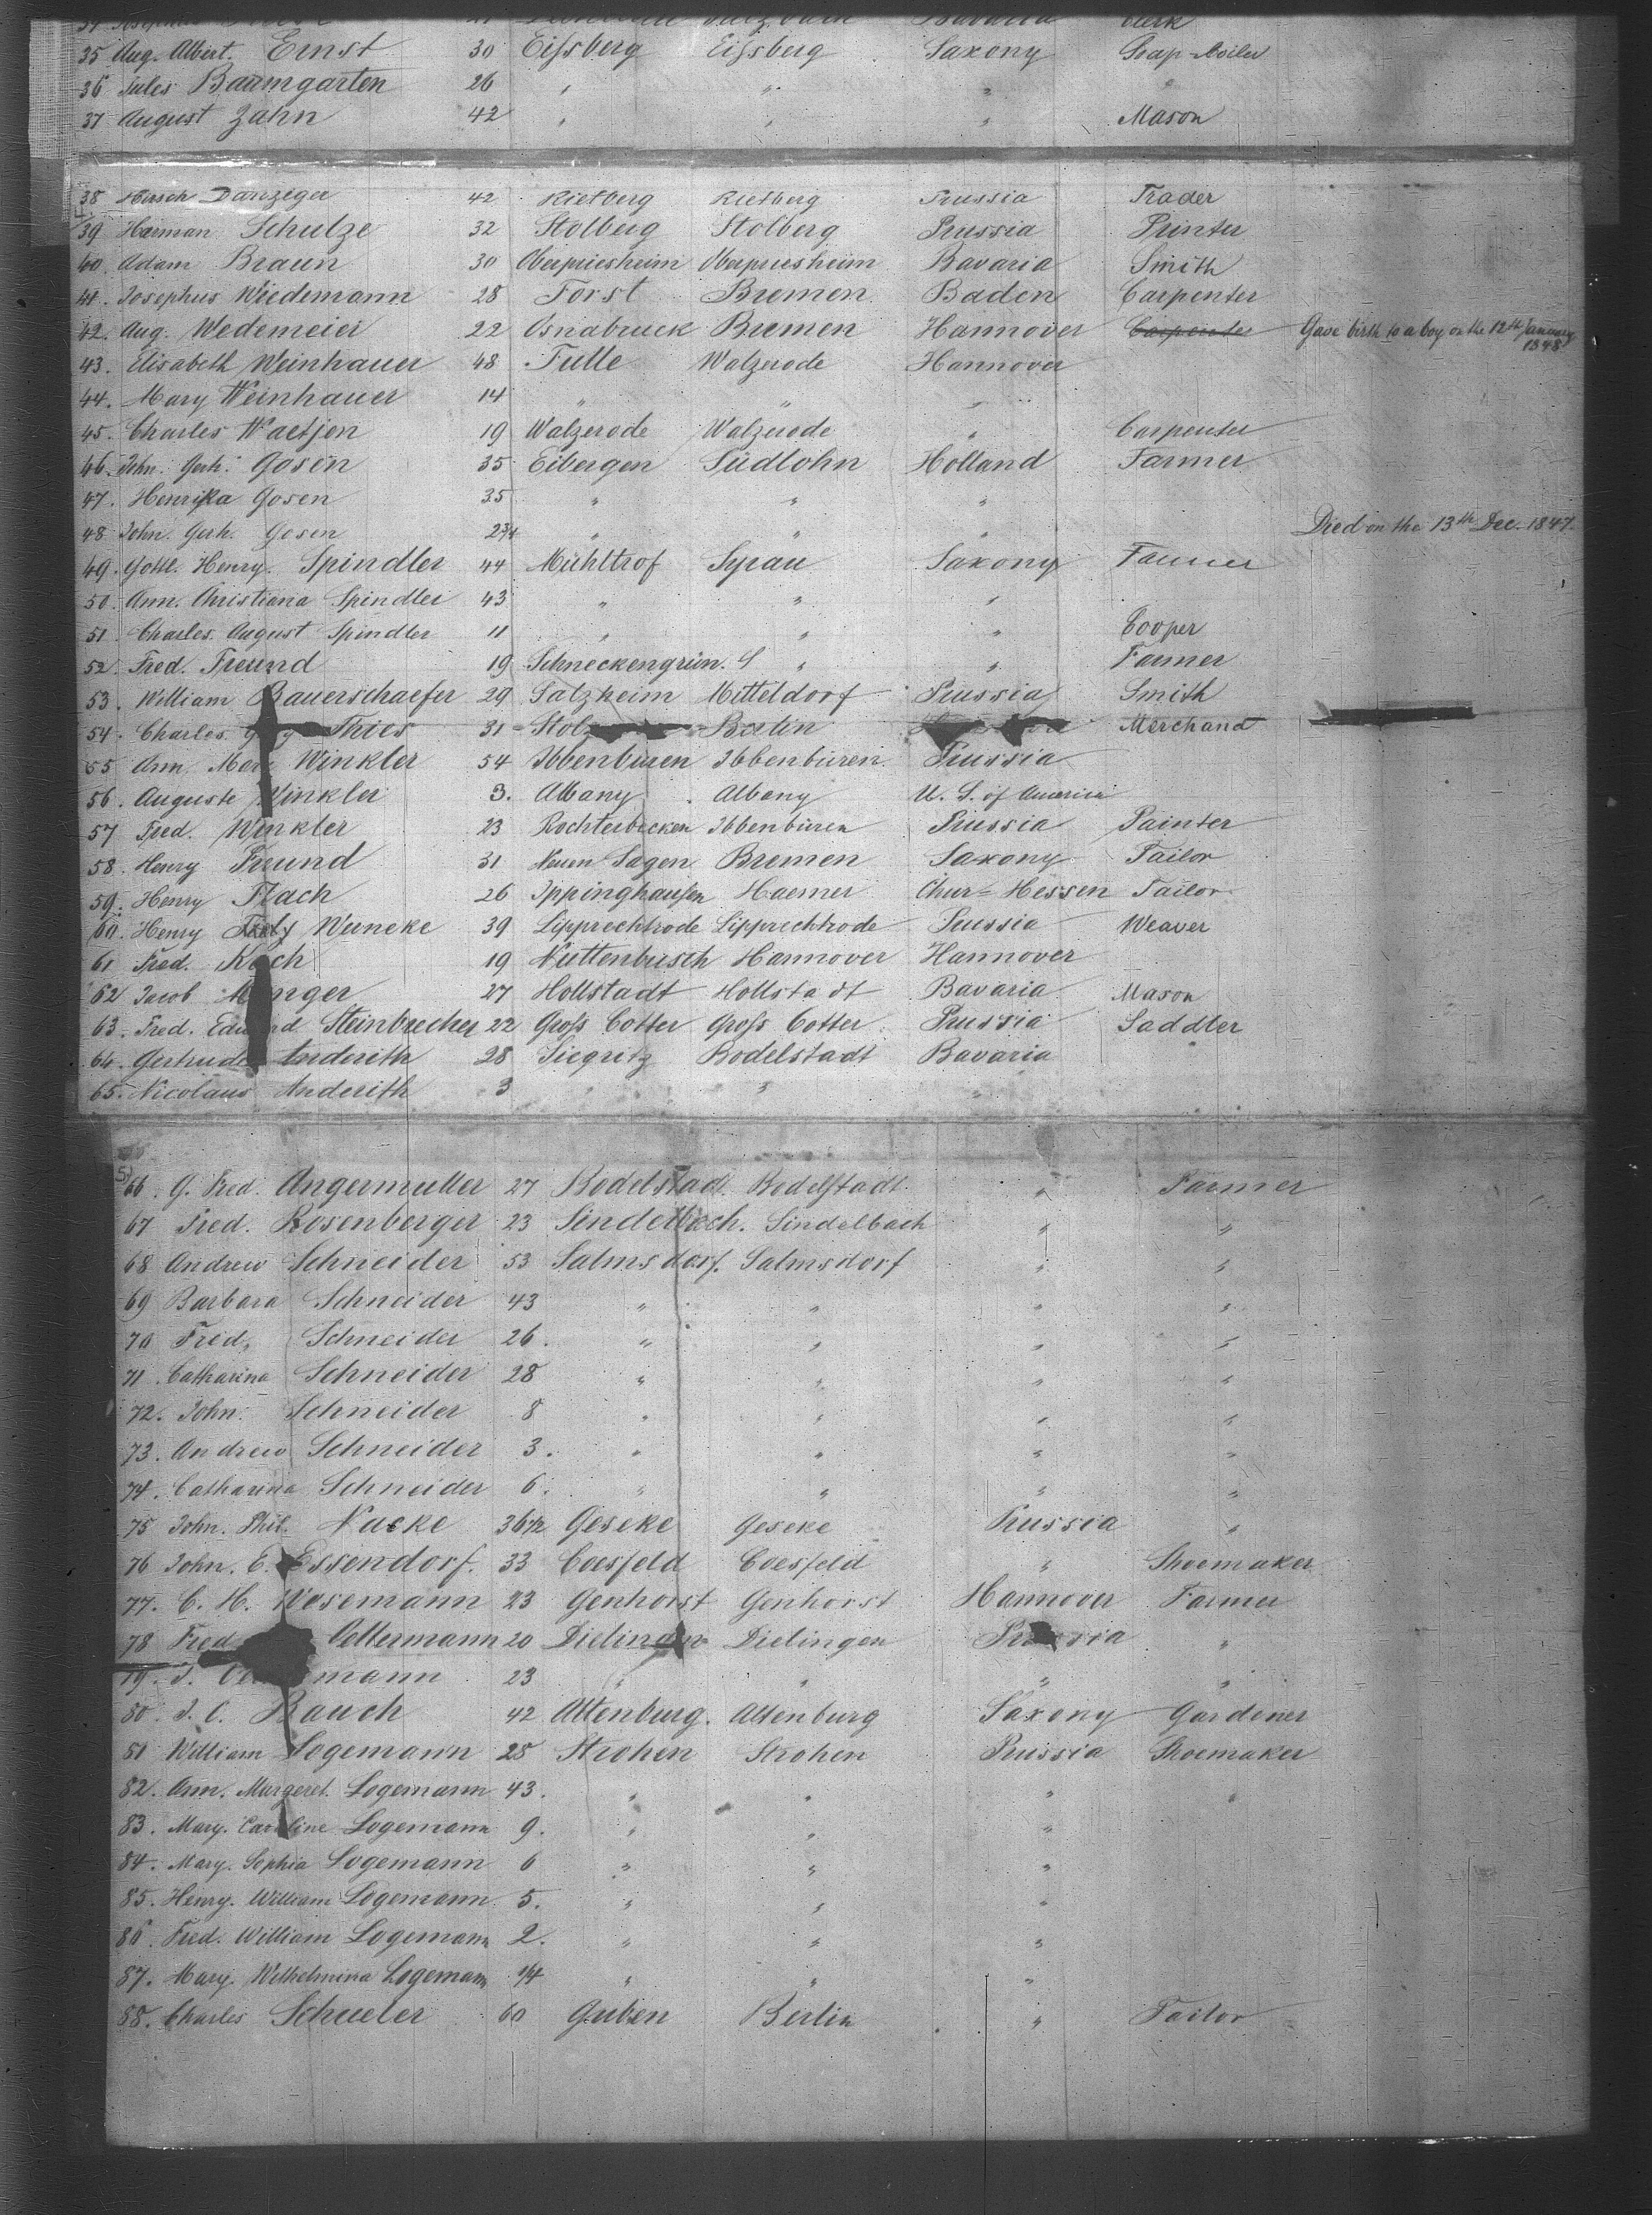 35 Aug. Albert. Ernst 30 Eifsberg Eifsberg Saxony Soap-boiler
36 Jules Baumgarten 26 " " " "
37 August Zahn 42 " " " Mason
38 Hirsch Danzeger 42 Rietberg Rietberg Prussia Trader
39 Harman Schulze 32 Stolberg Stolberg Prussia Printer
40. Adam Braun 30 Oberpriesheim Oberpriesheim Bavaria Smith
41. Josephus Wiedemann 28 Forst Bremen Baden Carpenter
42. Aug. Wedemeier 22 Osnabruck Bremen Hannover Carpenter Gave birth to a boy on the 12th January 1848
43. Elisabeth Weinhauer 48 Tulle Walzerode Hannover
44. Mary Weinhauer 14 " " "
45. Charles Waetjen 19 Walzerode Walzerode " Carpenter
46. John. Gerh. Gosen 35 Eibergen Südlohn Holland Farmer
47. Henrika Gosen 35 " " "
48 John. Gerh. Gosen 2 3/4 " " " Died on the 13th Dec. 1847
49. Gottl. Henry. Spindler 44 Mühltrof Syrau Saxony Farmer
50. Ann. Christiana Spindler 43 " " "
51. Charles. August Spindler 11 " " " Cooper
52. Fred. Freund 19 Schneckengrün. S " " Farmer
53. William Bauerschaefer 29 Salzheim Mitteldorf Prussia Smith
54. Charles Thies 31 Berlin Merchand
55 Ann Winkler 54 Ibbenburen Ibbenbüren Prussia
56. Auguste Winkler 3. Albany Albany U. S. of America
57 Fred. Winkler 23 Rochterbecken Ibbenbüren Prussia Painter
58. Henry Freund 31 Neuen Sagen Bremen Saxony Tailor
59. Henry Flach 26 Ippinghausen Haemer Chur-Hessen Tailor
60. Henry Wuneke 39 Lipprechtrode Lipprechtrode Prussia Weaver
61 Fred. Koch 19 Nuttenbusch Hannover Hannover
62 Jacob 27 Hollstadt Hollstadt Bavaria Mason
63. Fred. Edward Steinbrecher 22 Grofs Cotter Grofs Cotter Prussia Saddler
64. Gertrude Anderith 28 Siegritz Rodelstadt Bavaria
65. Nicolaus Anderith 3 " " "
66. G. Fred. Angermuller 27 Rodelstadt. Rodelstadt. " Farmer
67 Fred. Rosenberger 23 Sindelbach. Sindelbach " "
68 Andrew Schneider 53 Salmsdorf. Salmsdorf " "
69 Barbara Schneider 43 " " " "
70 Fred. Schneider 26. " " " "
71. Catharina Schneider 28 " " " "
72. John. Schneider 8 " " " "
73. Andrew Schneider 3. " " " "
74. Catharina Schneider 6. " " " "
75 John. Phil. Nacke 36 1/2 Geseke Geseke Prussia "
76 John. E. Essendorf. 33 Coesfeld Coesfeld " Shoemaker
77. C. H. Wesemann 23 Genhorst Genhorst Hannover Farmer
78 Fred Oellermann 20 Dielingen Dielingen Prussia "
79. J. mann 23 " " " "
80. J. C. Rauch 42 Altenburg. Altenburg Saxony Gardener
81 William Logemann 28 Strohen Strohen Prussia Shoemaker
82. Ann. Margeret. Logemann 43. " " "
83. Mary. Caroline Logemann 9. " " "
84. Mary. Sophia Logemann 6 " " "
85. Henry. William Logemann. 5. " " "
86. Fred. William Logemann 2. " " "
87. Mary. Wilhelmina Logemann 1/4 " " "
88. Charles Schueler 60 Guben Berlin " Tailor